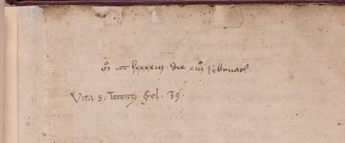 lxxxiii die xiii februarii
Vita s. Terentij fol. 39.